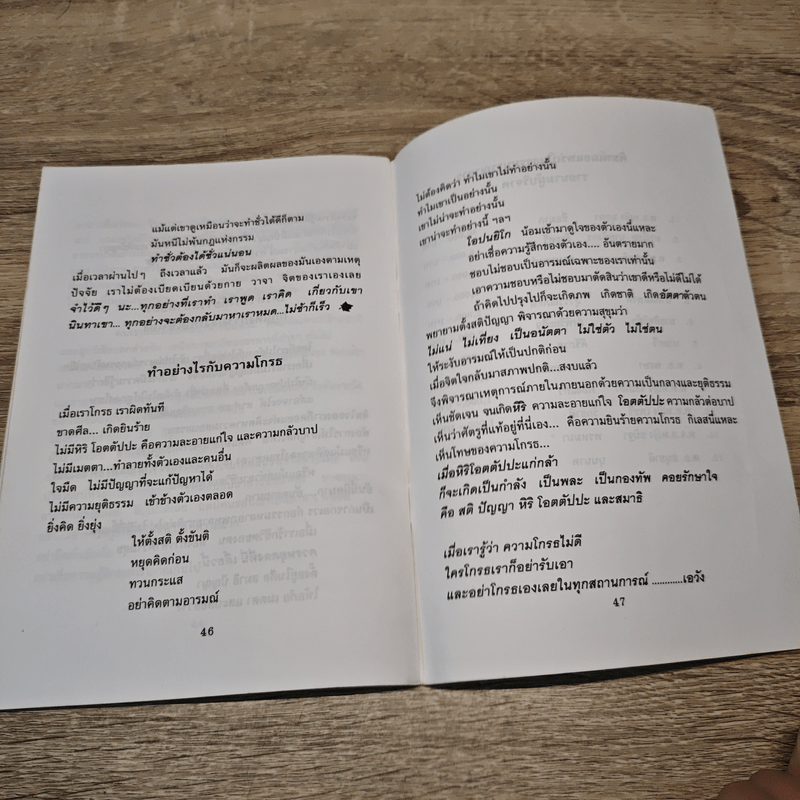 แม้แต่เขาดูเหมือนว่าจะทำชั่วได้ดีก็ตาม
มันหนีไม่พ้นกฎแห่งกรรม
ทำชั่วต้องได้ชั่วแน่นอน
เมื่อเวลาผ่านไปๆ ถึงเวลาแล้ว มันก็จะผลิตผลของมันเองตามเหตุ
ปัจจัย เราไม่ต้องเบียดเบียนด้วยกาย วาจา จิตของเราเองเลย
จำไว้ดีๆ นะ...ทุกอย่างที่เราทำ เราพูด เราคิด เกี่ยวกับเขา
นินทาเขา... ทุกอย่างจะต้องกลับมาหาเราหมด...ไม่ช้าก็เร็ว
ทำอย่างไรกับความโกรธ
เมื่อเราโกรธ เราผิดทันที
ขาดศีล... เกิดยินร้าย
ไม่มีหิริ โอตตัปปะ คือความละอายแก่ใจ และความกลัวบาป
ไม่มีเมตตา...ทำลายทั้งตัวเองและคนอื่น
ใจมืด ไม่มีปัญญาที่จะแก้ปัญหาได้
ไม่มีความยุติธรรม เข้าข้างตัวเองตลอด
ยิ่งคิด ยิ่งยุ่ง
ให้ตั้งสติ ตั้งขันติ
หยุดคิดก่อน
ทวนกระแส
อย่าคิดตามอารมณ์
46
ไม่ต้องคิดว่า ทำไมเขาไม่ทำอย่างนั้น
ทำไมเขาเป็นอย่างนั้น
เขาไม่น่าจะทำอย่างนั้น
เขาน่าจะทำอย่างนี้ ฯลฯ
โอปนยิโก น้อมเข้ามาดูใจของตัวเองนี้แหละ
อย่าเชื่อความรู้สึกของตัวเอง.... อันตรายมาก
ชอบไม่ชอบเป็นอารมณ์เฉพาะของเราเท่านั้น
เอาความชอบหรือไม่ชอบมาตัดสินว่าเขาดีหรือไม่ดีไม่ได้
ถ้าคิดไปปรุงไปก็จะเกิดภพ เกิดชาติ เกิดอัตตาตัวตน
พยายามตั้งสติปัญญา พิจารณาด้วยความสุขุมว่า
ไม่แน่ ไม่เที่ยง เป็นอนัตตา ไม่ใช่ตัว ไม่ใช่ตน
ให้ระงับอารมณ์ให้เป็นปกติก่อน
เมื่อจิตใจกลับมาสภาพปกติ...สงบแล้ว
จึงพิจารณาเหตุการณ์ภายในภายนอกด้วยความเป็นกลางและยุติธรรม
เห็นชัดเจน จนเกิดหิริ ความละอายแก่ใจ โอตตัปปะ ความกลัวต่อบาป
เห็นว่าศัตรูที่แท้อยู่ที่นี่เอง... คือความยินร้ายความโกรธ กิเลสนี่แหละ
เห็นโทษของความโกรธ...
เมื่อหิริโอตตัปปะแก่กล้า
ก็จะเกิดเป็นกำลัง เป็นพละ เป็นกองทัพ คอยรักษาใจ
คือ สติ ปัญญา หิริ โอตตัปปะ และสมาธิ
เมื่อเรารู้ว่า ความโกรธไม่ดี
ใครโกรธเราก็อย่ารับเอา
และอย่าโกรธเองเลยในทุกสถานการณ์ ............เอวัง
47